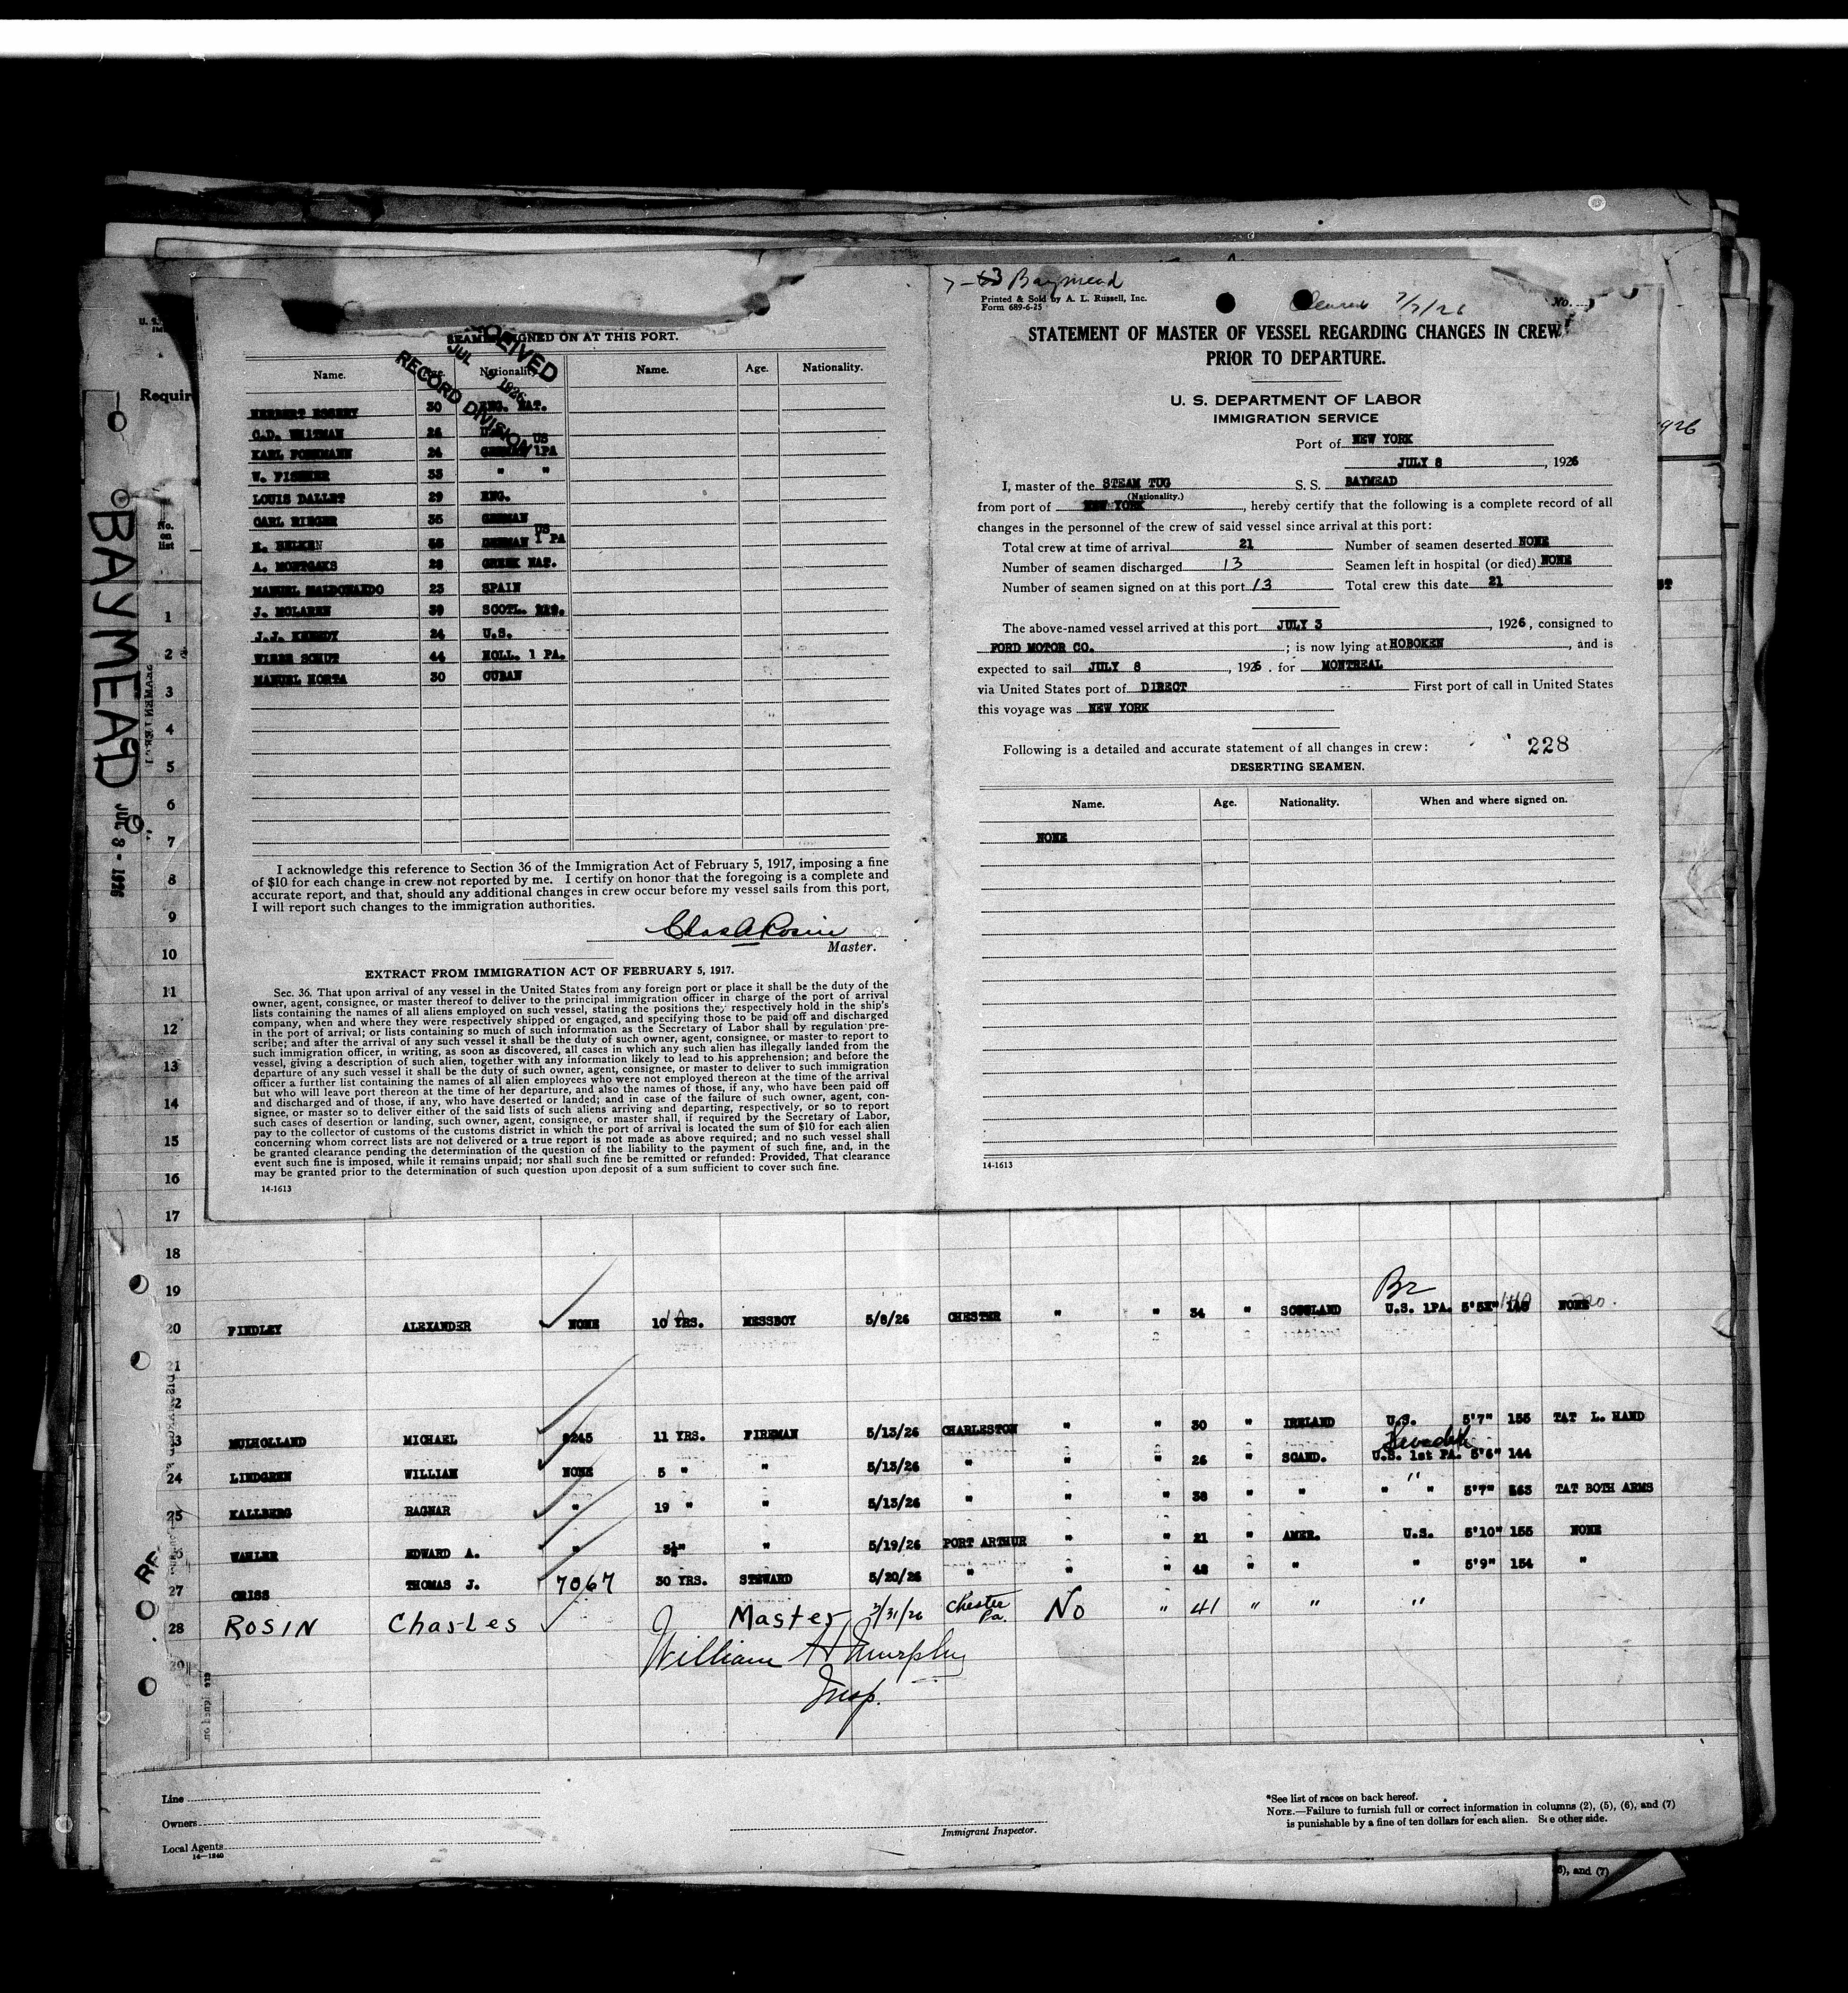 BAYMEAD
JUL 3 - 1926
Requir
No.
on
list
SEAMEN SIGNED ON AT THIS PORT.
RECEIVED
JUL 9 1926
RECORD DIVISION
Name. Age. Nationality. Name. Age. Nationality.
HERBERT 30 ENG. NAT.
C.D. WHITMAN 26 U.S.
KARL 24 GERMAN US 1PA
W. FISCHER 33 " "
LOUIS DALLET 29 ENG.
CARL RIEGER 35 GERMAN
GERMAN US 1 PA
A. 28 GREEK NAT.
MANUEL MALDONARDO 23 SPAIN
J. MCLAREN 39 SCOTL.
J.J. 24 U.S.
SCHUT 44 HOLL. 1 PA.
MANUEL HORTA 30 CUBAN
I acknowledge this reference to Section 36 of the Immigration Act of February 5, 1917, imposing a fine
of $10 for each change in crew not reported by me. I certify on honor that the foregoing is a complete and
accurate report, and that, should any additional changes in crew occur before my vessel sails from this port,
I will report such changes to the immigration authorities.
Chas A Rosin
Master.
EXTRACT FROM IMMIGRATION ACT OF FEBRUARY 5, 1917.
Sec. 36. That upon arrival of any vessel in the United States from any foreign port or place it shall be the duty of the
owner, agent, consignee, or master thereof to deliver to the principal immigration officer in charge of the port of arrival
lists containing the names of all aliens employed on such vessel, stating the positions they respectively hold in the ship's
company, when and where they were respectively shipped or engaged, and specifying those to be paid off and discharged
in the port of arrival; or lists containing so much of such information as the Secretary of Labor shall by regulation pre-
scribe; and after the arrival of any such vessel it shall be the duty of such owner, agent, consignee, or master to report to
such immigration officer, in writing, as soon as discovered, all cases in which any such alien has illegally landed from the
vessel, giving a description of such alien, together with any information likely to lead to his apprehension; and before the
departure of any such vessel it shall be the duty of such owner, agent, consignee, or master to deliver to such immigration
officer a further list containing the names of all alien employees who were not employed thereon at the time of the arrival
but who will leave port thereon at the time of her departure, and also the names of those, if any, who have been paid off
and discharged and of those, if any, who have deserted or landed; and in case of the failure of such owner, agent, con-
signee, or master so to deliver either of the said lists of such aliens arriving and departing, respectively, or so to report
such cases of desertion or landing, such owner, agent, consignee, or master shall, if required by the Secretary of Labor,
pay to the collector of customs of the customs district in which the port of arrival is located the sum of $10 for each alien
concerning whom correct lists are not delivered or a true report is not made as above required; and no such vessel shall
be granted clearance pending the determination of the question of the liability to the payment of such fine, and, in the
event such fine is imposed, while it remains unpaid; nor shall such fine be remitted or refunded: Provided, That clearance
may be granted prior to the determination of such question upon deposit of a sum sufficient to cover such fine.
14-1613
7-3 Baymead
Printed & Sold by A. L. Russell, Inc.
Form 689-6-25
7/7/26
No.
STATEMENT OF MASTER OF VESSEL REGARDING CHANGES IN CREW
PRIOR TO DEPARTURE.
U. S. DEPARTMENT OF LABOR
IMMIGRATION SERVICE
Port of NEW YORK
JULY 8, 1926
I, master of the STEAM TUG S. S. BAYMEAD
(Nationality.)
from port of NEW YORK, hereby certify that the following is a complete record of all
changes in the personnel of the crew of said vessel since arrival at this port:
Total crew at time of arrival 21 Number of seamen deserted NONE
Number of seamen discharged 13 Seamen left in hospital (or died) NONE
Number of seamen signed on at this port 13 Total crew this date 21
The above-named vessel arrived at this port JULY 3, 1926, consigned to
FORD MOTOR CO.; is now lying at HOBOKEN, and is
expected to sail JULY 8, 1926. for MONTREAL
via United States port of DIRECT First port of call in United States
this voyage was NEW YORK
Following is a detailed and accurate statement of all changes in crew: 228
DESERTING SEAMEN.
Name. Age. Nationality. When and where signed on.
NONE
14-1613
1
2
3
4
5
6
7
8
9
10
11
12
13
14
15
16
17
18
19
20 FINDLEY ALEXANDER NONE 10 YRS. MESSBOY 5/8/26 CHESTER " " 34 " SCOTLAND Br U.S. 1PA. NONE
21
MULHOLLAND MICHAEL 8245 11 YRS. FIREMAN 5/13/26 CHARLESTON " " 30 " IRELAND U.S. 5'7" 155 TAT L. HAND
24 LINDGREN WILLIAM NONE 5 " " 5/13/26 " " " 26 " SCAND. Swedish U.S. 1st PA. 5'6" 144
25 KALLBERG RAGNAR " 19 " " 5/13/26 " " " 38 " " " " 5'7" 163 TAT BOTH ARMS
WAHLER EDWARD A. " 3½" " 5/19/26 PORT ARTHUR " " 21 " AMER. U.S. 5'10" 155 NONE
27 CRISS THOMAS J. 7067 30 YRS. STEWARD 5/20/26 " " " 48 " " " 5'9" 154 "
28 ROSIN Charles Master 3/31/26 Chester Pa. No " 41 " " "
29 William H Murphy
Insp.
Line
Owners
Local Agents
14-1240
Immigrant Inspector.
*See list of races on back hereof.
NOTE.—Failure to furnish full or correct information in columns (2), (5), (6), and (7)
is punishable by a fine of ten dollars for each alien. See other side.
6), and (7)